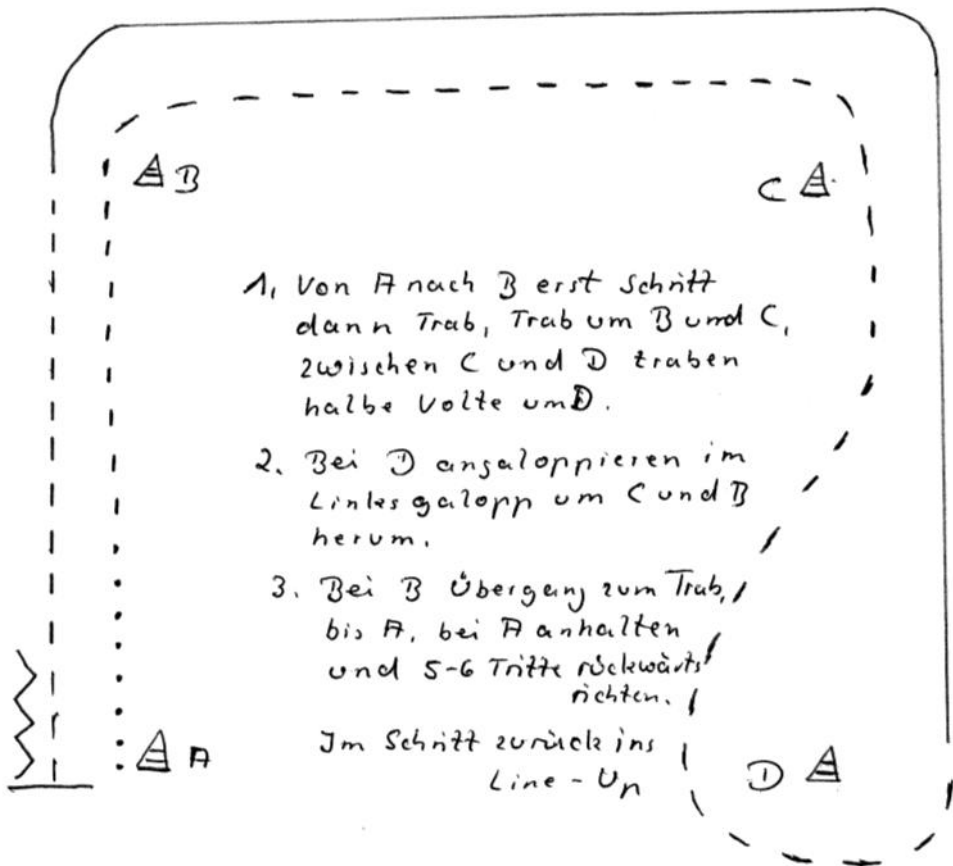 B
C
1, Von A nach B erst Schritt
dann Trab, Trab um B und C,
zwischen C und D traben
halbe Volte um D.
2. Bei D angaloppieren im
Linksgalopp um C und B
herum.
3. Bei B Übergang zum Trab,
bis A, bei A anhalten
und 5-6 Tritte rückwärts
richten.
Im Schritt zurück ins
Line-Up
A
D